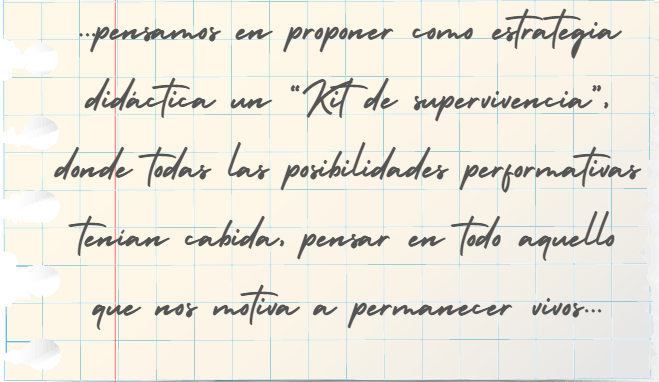 ...pensamos en proponer como estrategia
didáctica un "Kit de supervivencia",
donde todas las posibilidades performativas
tenían cabida, pensar en todo aquello
que nos motiva a permanecer vivos...